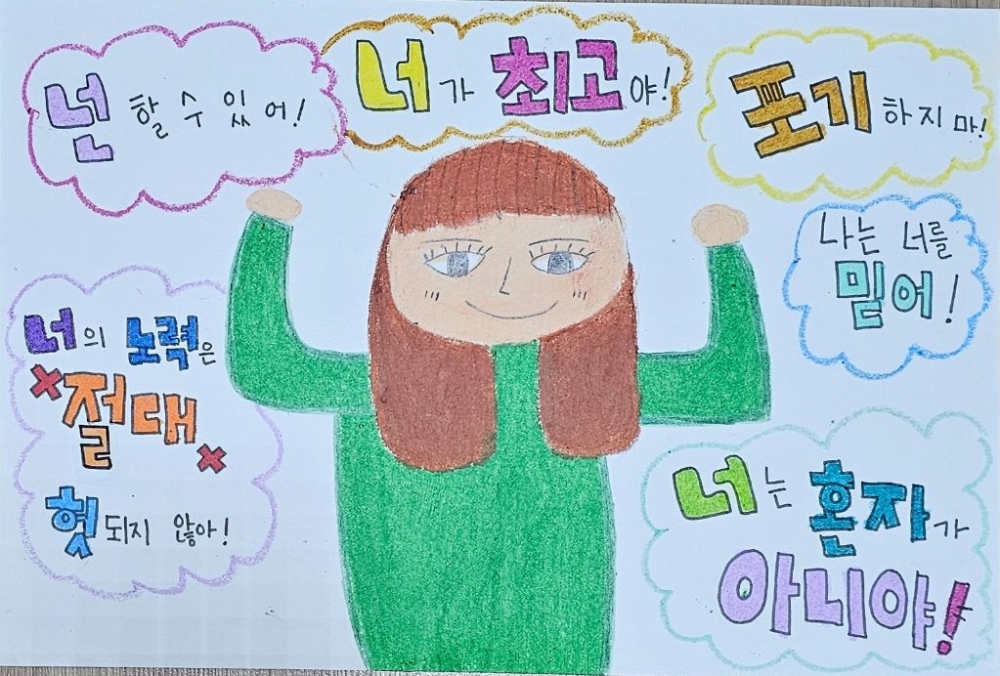 넌 할 수 있어!
너가 최고야!
포기하지 마!
나는 너를
믿어!
너의 노력은
절대
헛되지 않아!
너는 혼자가
아니야!